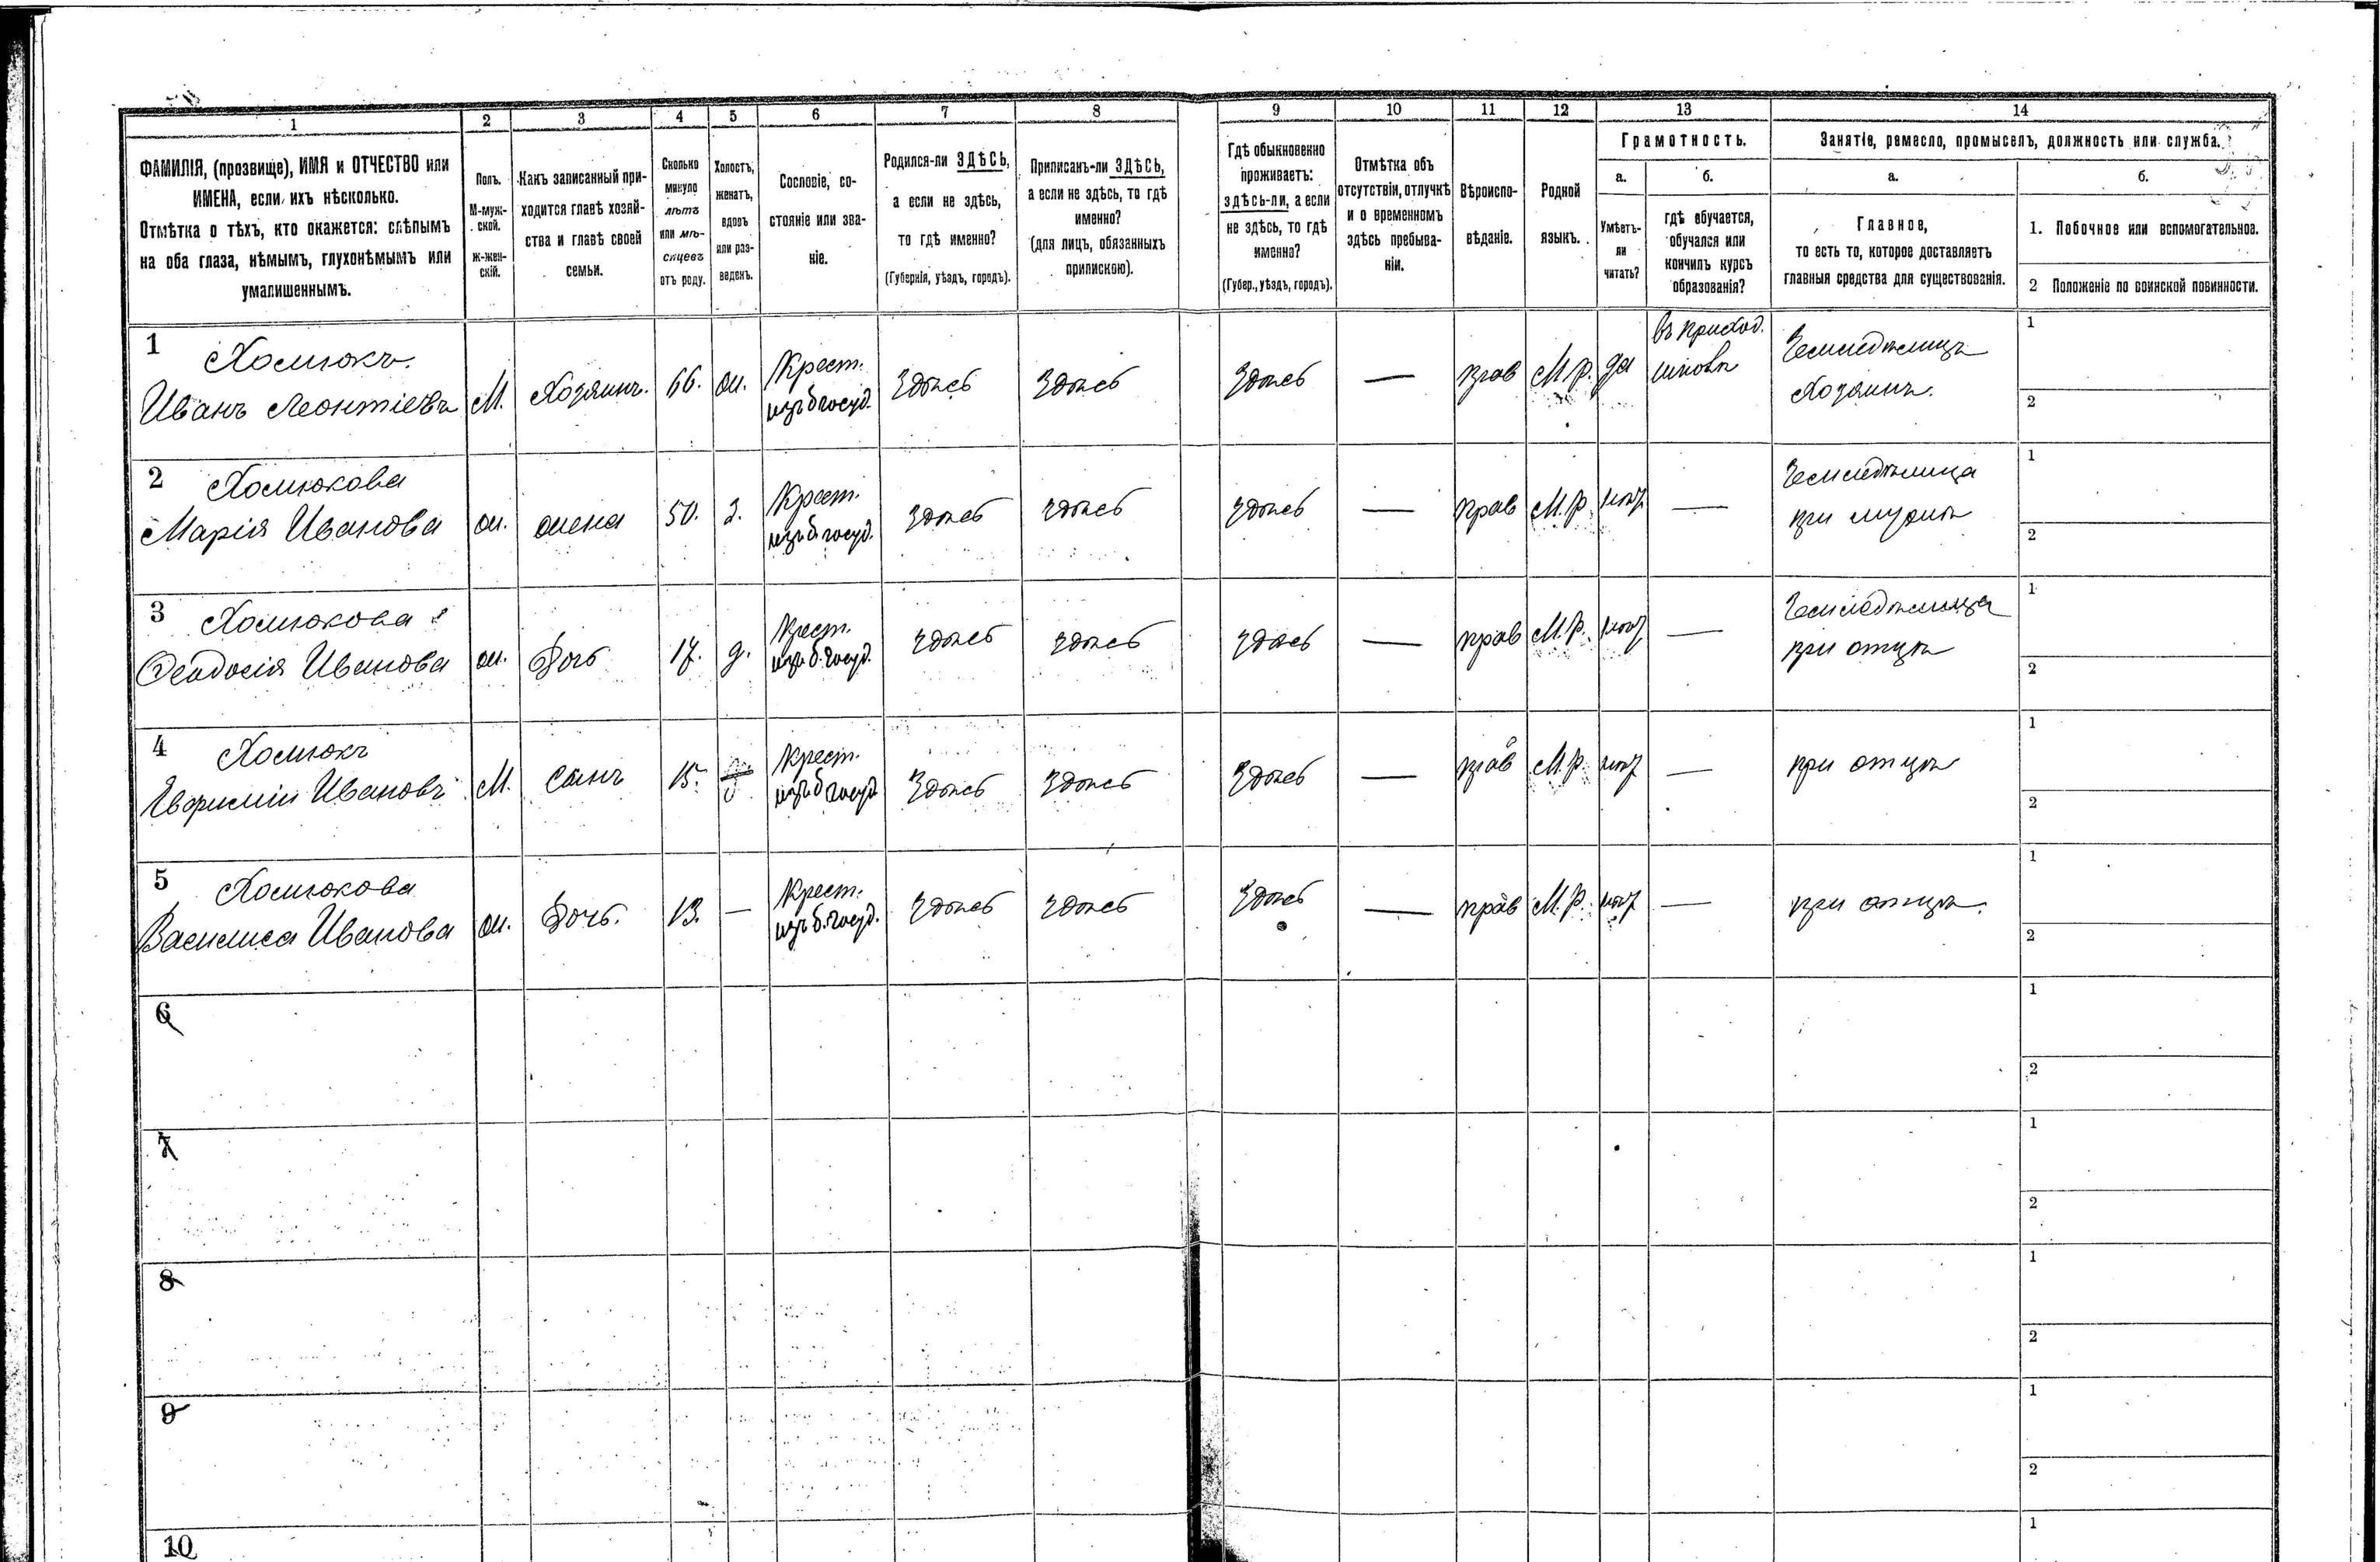 1 2 3 4 5 6 7 8 9 10 11 12 13 14
ФАМИЛІЯ, (прозвище), ИМЯ и ОТЧЕСТВО или
ИМЕНА, если ихъ нѣсколько.
Отмѣтка о тѣхъ, кто окажется: слѣпымъ
на оба глаза, нѣмымъ, глухонѣмымъ или
умалишеннымъ.
Полъ.
М-муж-
ской.
Ж-жен-
скій.
Какъ записанный при-
ходится главѣ хозяй-
ства и главѣ своей
семьи.
Сколько
минуло
лѣтъ
или мѣ-
сяцевъ
отъ роду.
Холостъ,
женатъ,
вдовъ
или раз-
веденъ.
Сословіе, со-
стояніе или зва-
ніе.
Родился-ли ЗДѢСЬ,
а если не здѣсь,
то гдѣ именно?
(Губернія, уѣздъ, городъ).
Приписанъ-ли ЗДѢСЬ,
а если не здѣсь, то гдѣ
именно?
(для лицъ, обязанныхъ
припискою).
Гдѣ обыкновенно
проживаетъ:
здѣсь-ли, а если
не здѣсь, то гдѣ
именно?
(Губер., уѣздъ, городъ).
Отмѣтка объ
отсутствіи, отлучкѣ
и о временномъ
здѣсь пребыва-
ніи.
Вѣроиспо-
вѣданіе.
Родной
языкъ.
Грамотность.
а.
Умѣетъ-
ли
читать?
б.
гдѣ обучается,
обучался или
кончилъ курсъ
образованія?
Занятіе, ремесло, промыселъ, должность или служба.
а.
Главное,
то есть то, которое доставляетъ
главныя средства для существованія.
б.
1. Побочное или вспомогательное.
2 Положеніе по воинской повинности.
1 Хомюкъ.
Иванъ Леонтіевъ
М.
Хозяинъ.
66.
ж.
Крест.
изъ б госуд.
Здѣсь
Здѣсь
Здѣсь
—
прав
М.р.
да
въ приход.
школѣ
Земледѣлецъ
Хозяинъ.
1
2
2 Хомюкова
Марія Иванова
ж.
жена
50.
З.
Крест.
изъ б. госуд.
Здѣсь
здѣсь
здѣсь
—
прав
М.р.
нѣт
—
Земледѣлица
при мужѣ
1
2
3 Хомюкова
Ѳеодосія Иванова
ж.
Дочь
17.
д.
Крест.
изъ б. госуд.
здѣсь
здѣсь
здѣсь
—
прав
М.р.
нѣт
—
Земледѣлица
при отцѣ
1
2
4 Хомюкъ
Евфимій Ивановъ
М.
Сынъ
15.
Крест.
изъ б госуд
Здѣсь
Здѣсь
Здѣсь
—
прав
М.р.
нѣт
—
при отцѣ
1
2
5 Хомюкова
Василиса Иванова
ж.
Дочь.
13.
—
Крест.
изъ б. госуд.
Здѣсь
здѣсь
Здѣсь
—
прав
М.р.
нѣт
—
при отцѣ.
1
2
6
1
2
7
1
2
8
1
2
9
1
2
10
1